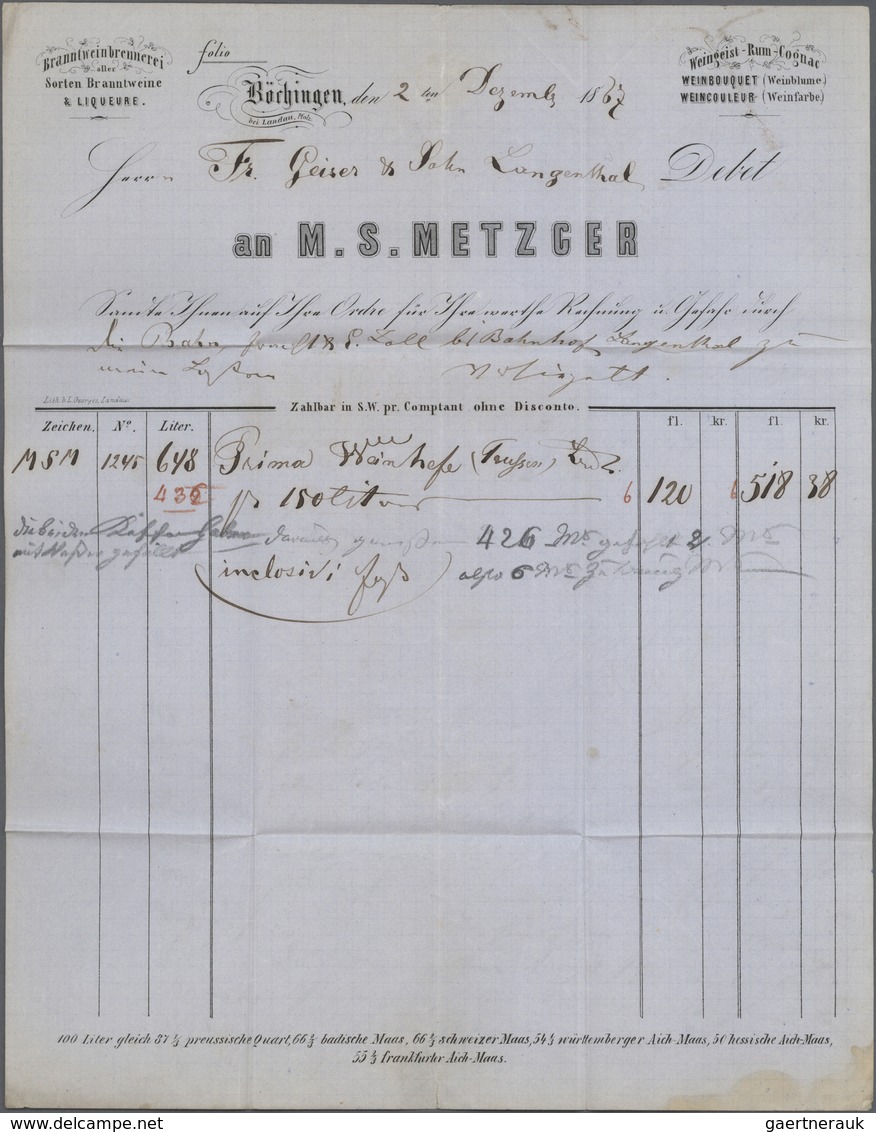 Branntweinbrennerei
aller
Sorten Branntweine
& LIQUEURE.
folio
Böchingen, den 2 ten Dezemb 1867
bei Landau, Pfalz.
Weingeist-Rum-Cognac
WEINBOUQUET (Weinblume)
WEINCOULEUR (Weinfarbe)
Herrn Fr. Geiser & Sohn Langenthal Debet
an M. S. METZGER
Sandte Ihnen auf Ihre Ordre für Ihre werthe Rechnung u. Gefahr durch
die Bahn, Zoll Bahnhof Langenthal zu
Lith. b. L. Georges, Landau.
Zahlbar in S.W. pr. Comptant ohne Disconto.
Zeichen. No. Liter. fl. kr. fl. kr.
MSM 1245 648 Prima Weinhefe (Trussen)
432 pr 150 liter 6 120 6 518 38
die beiden 426
gefüllt
inclosivi faß also 6
100 Liter gleich 87 1/3 preussische Quart, 66 2/3 badische Maas, 66 2/3 schweizer Maas, 54 1/2 württemberger Aich-Maas, 50 hessische Aich-Maas,
55 4/5 frankfurter Aich-Maas.
delcampe.net
gaertnerauk